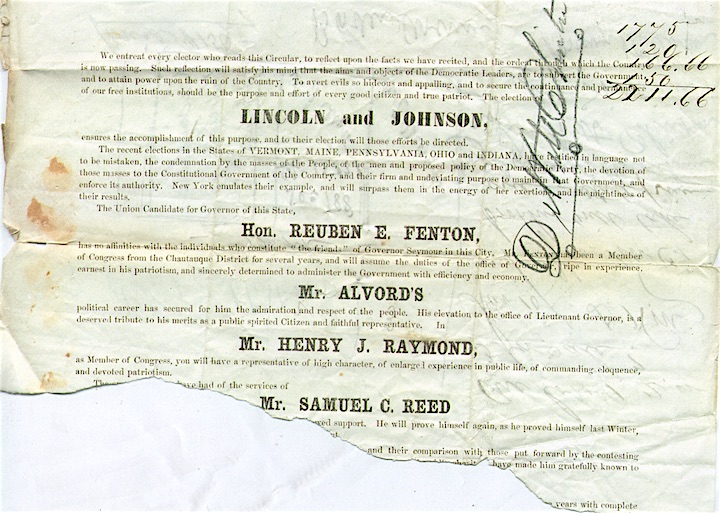 17 75
1,26,66
50
We entreat every elector who reads this Circular, to reflect upon the facts we have recited, and the ordeal through which the Country
is now passing. Such reflection will satisfy his mind that the aims and objects of the Democratic Leaders, are to subvert the Government
and to attain power upon the ruin of the Country. To avert evils so hideous and appalling, and to secure the continuance and permanence
of our free institutions, should be the purpose and effort of every good citizen and true patriot. The election of
LINCOLN and JOHNSON,
ensures the accomplishment of this purpose, and to their election will those efforts be directed.
The recent elections in the States of VERMONT, MAINE, PENNSYLVANIA, OHIO and INDIANA, have testified in language not
to be mistaken, the condemnation by the masses of the People, of the men and proposed policy of the Democratic Party, the devotion of
those masses to the Constitutional Government of the Country, and their firm and undeviating purpose to maintain that Government, and
enforce its authority. New York emulates their example, and will surpass them in the energy of her exertions, and the mightiness of
their results.
The Union Candidate for Governor of this State,
Hon. REUBEN E. FENTON,
has no affinities with the individuals who constitute "the friends" of Governor Seymour in this City. Mr. FENTON has been a Member
of Congress from the Chautauque District for several years, and will assume the duties of the office of Governor, ripe in experience,
earnest in his patriotism, and sincerely determined to administer the Government with efficiency and economy.
Mr. ALVORD'S
political career has secured for him the admiration and respect of the people. His elevation to the office of Lieutenant Governor, is a
deserved tribute to his merits as a public spirited Citizen and faithful representative. In
Mr. HENRY J. RAYMOND,
as Member of Congress, you will have a representative of high character, of enlarged experience in public life, of commanding eloquence,
and devoted patriotism.
have had of the services of
Mr. SAMUEL C. REED
support. He will prove himself again, as he proved himself last Winter,
and their comparison with those put forward by the contesting
have made him gratefully known to
years with complete